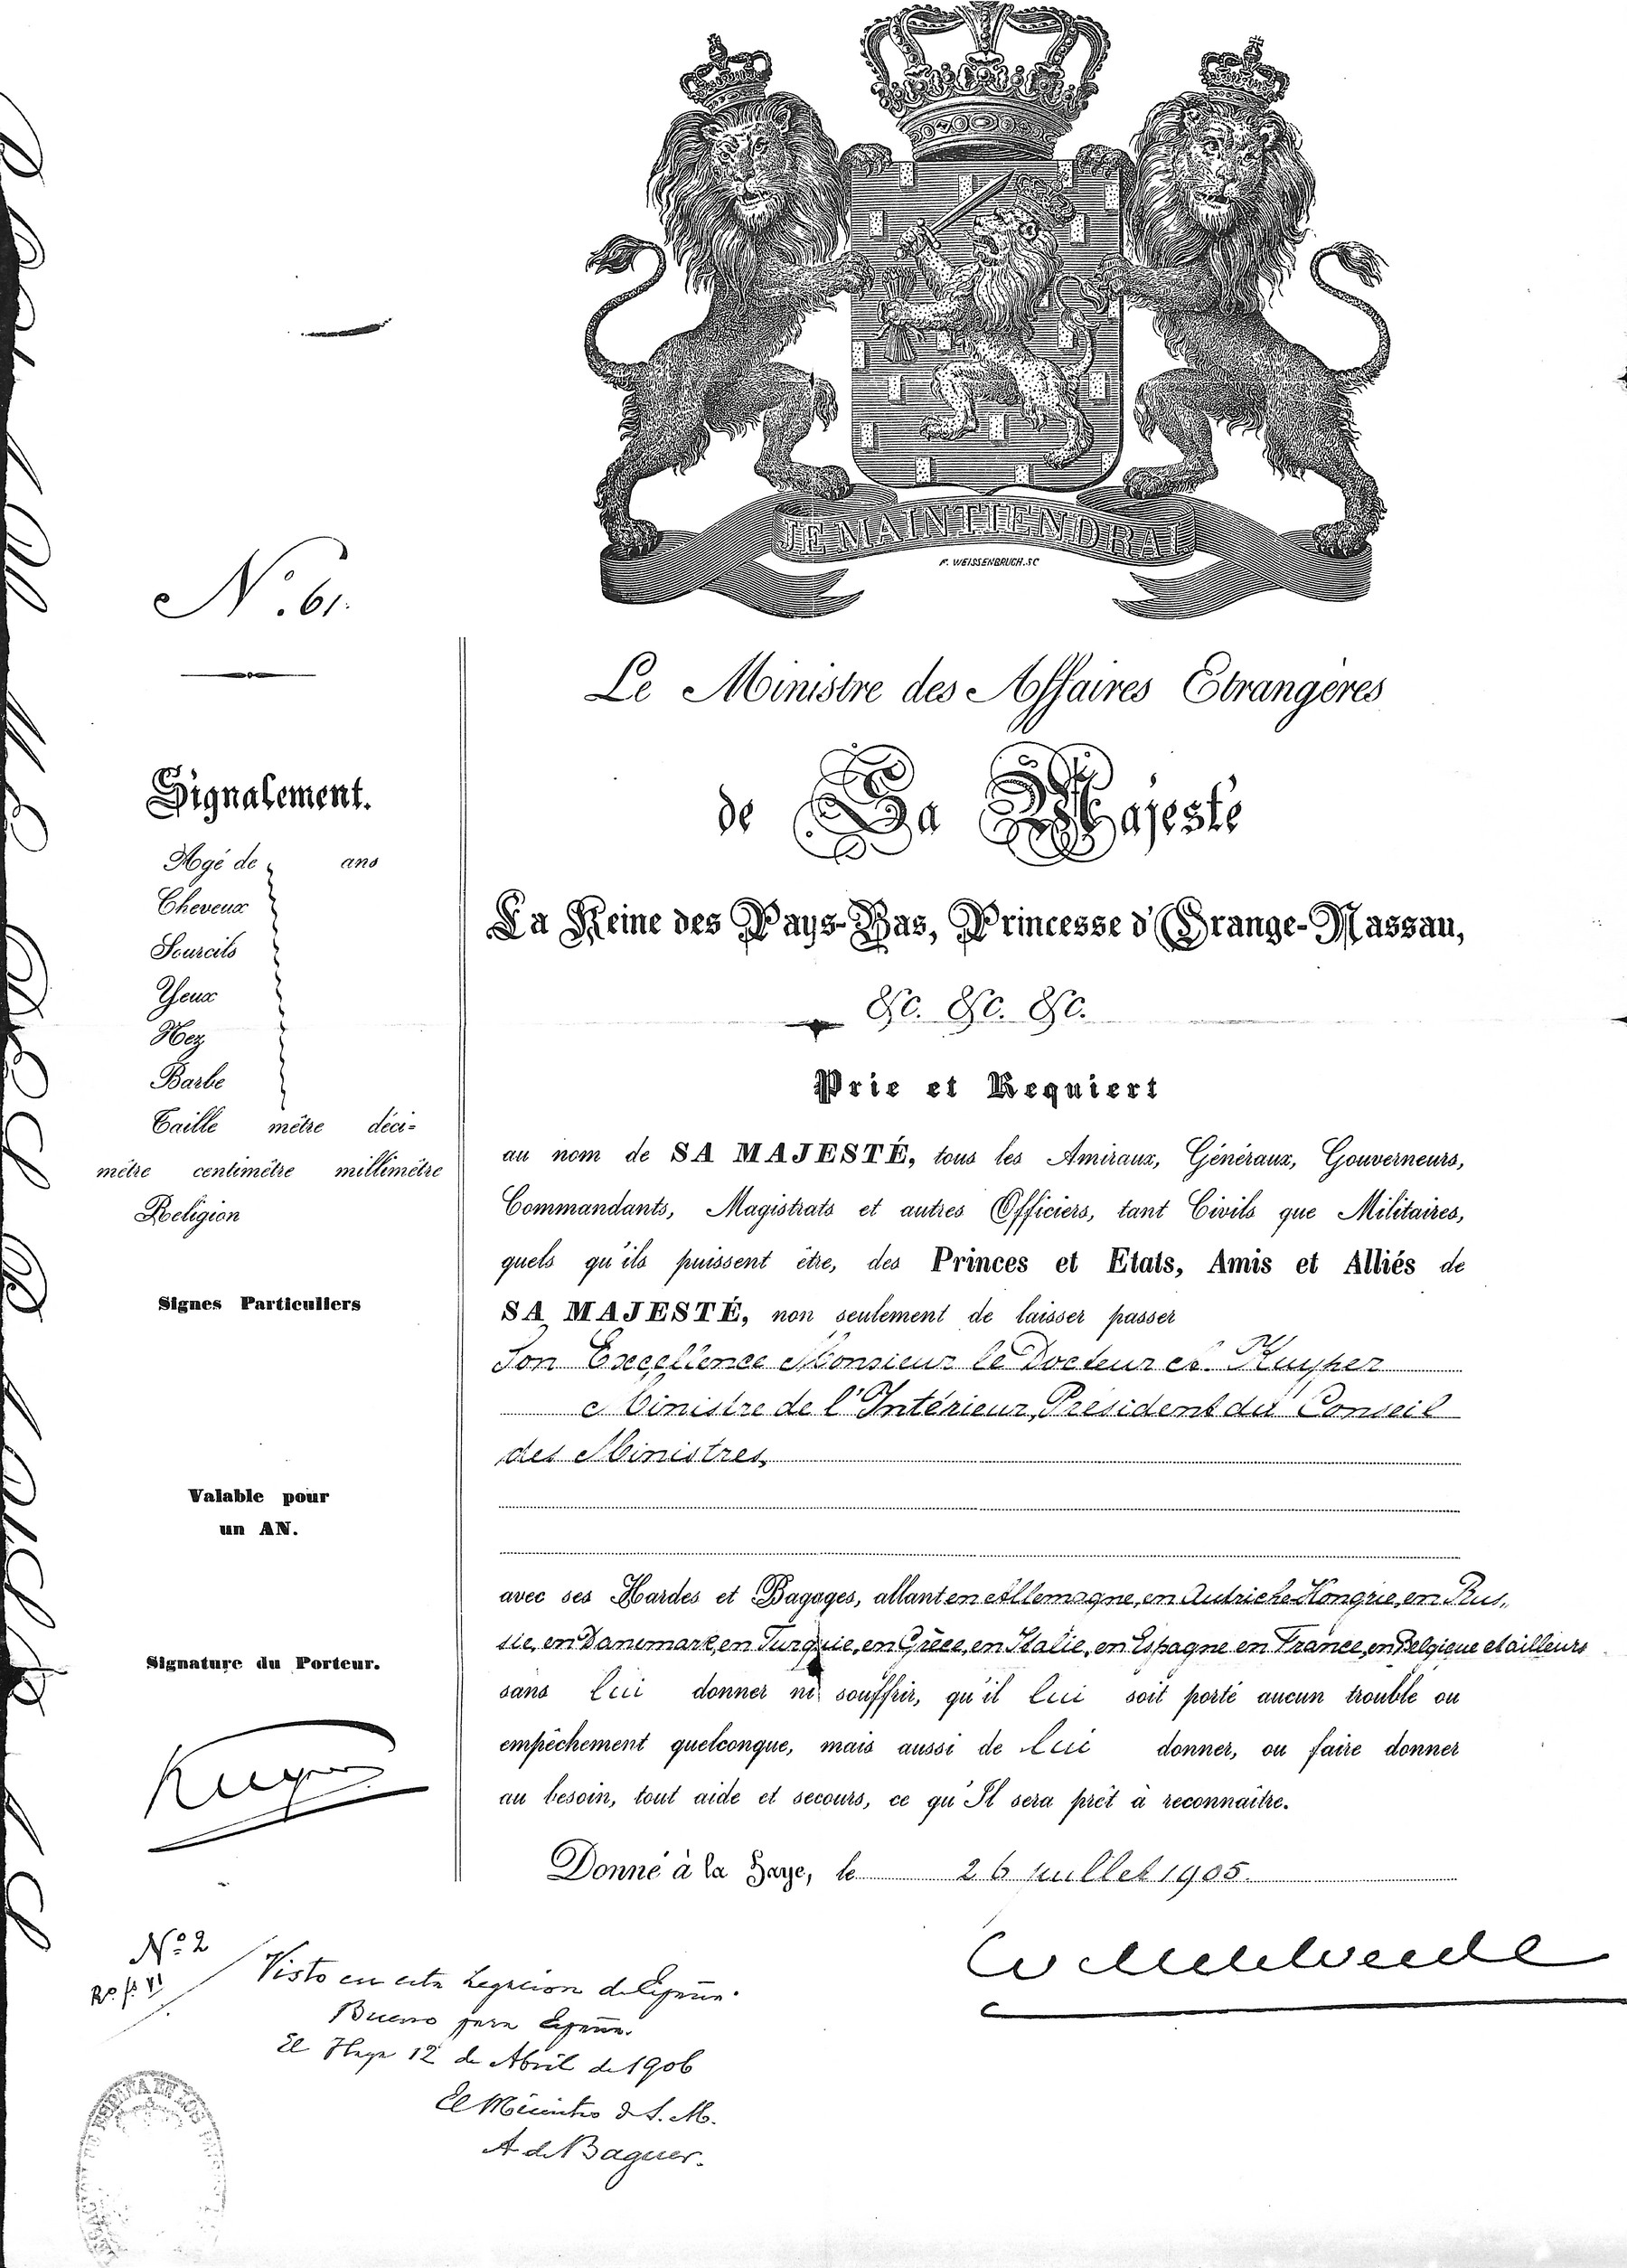 JE MAINTIENDRAI
F. WEISSENBRUCH. SC
Nº. 61.
Le Ministre des Affaires Etrangères
de Sa Majesté
La Reine des Pays-Bas, Princesse d'Orange-Nassau,
&c. &c. &c.
Prie et Requiert
au nom de SA MAJESTÉ, tous les Amiraux, Généraux, Gouverneurs,
Commandants, Magistrats et autres Officiers, tant Civils que Militaires,
quels qu'ils puissent être, des Princes et Etats, Amis et Alliés de
SA MAJESTÉ, non seulement de laisser passer
Son Excellence Monsieur le Docteur A. Kuyper
Ministre de l'Intérieur, Président du Conseil
des Ministres,
avec ses Hardes et Bagages, allant en Allemagne, en Autriche-Hongrie, en Rus-
sie, en Danemark, en Turquie, en Grèce, en Italie, en Espagne en France, en Belgique et ailleurs
sans lui donner ni souffrir, qu'il lui soit porté aucun trouble ou
empêchement quelconque, mais aussi de lui donner, ou faire donner
au besoin, tout aide et secours, ce qu'Il sera prêt à reconnaître.
Donné à la Haye, le 26 juillet 1905.
Signalement.
Agé de ans
Cheveux
Sourcils
Yeux
Nez
Barbe
Taille mètre déci-
mètre centimètre millimètre
Religion
Signes Particuliers
Valable pour
un AN.
Signature du Porteur.
Kuyper
Nº. 2
Visto en esta Legacion de España.
Bueno para España.
El Haya 12 de Abril de 1906
El Ministro de S. M.
A de Baguer.